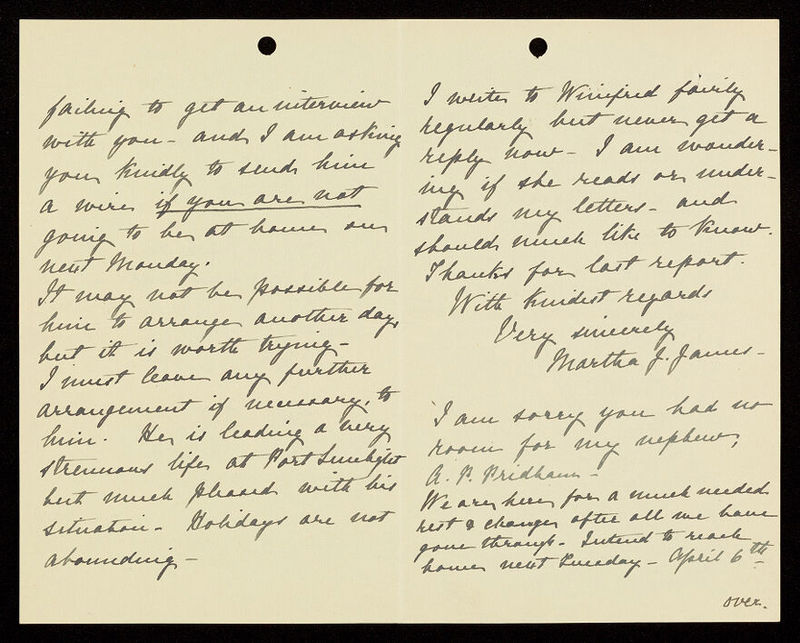 failing to get an interview
with you - and I am asking
you kindly to send him
a wire if you are not
going to be at home on
next Monday.
It may not be possible for
him to arrange another day,
but it is worth trying -
I must leave any further
arrangement if necessary, to
him. He is leading a very
strennous life at Port Sunlight
but much pleased with his
situation - Holidays are not
abounding -
I write to Winifred fairly
regularly but never get a
reply now - I am wonder-
ing if she reads or under-
stands my letters - and
should much like to know.
Thanks for last report.
With kindest regards
Very sincerely
Martha J. James -
I am sorry you had no
room for my nephew,
A. P. Pridham -
We are here for a much needed
rest & change after all we have
gone through - Intend to reach
home next Tuesday - April 6th -
over.